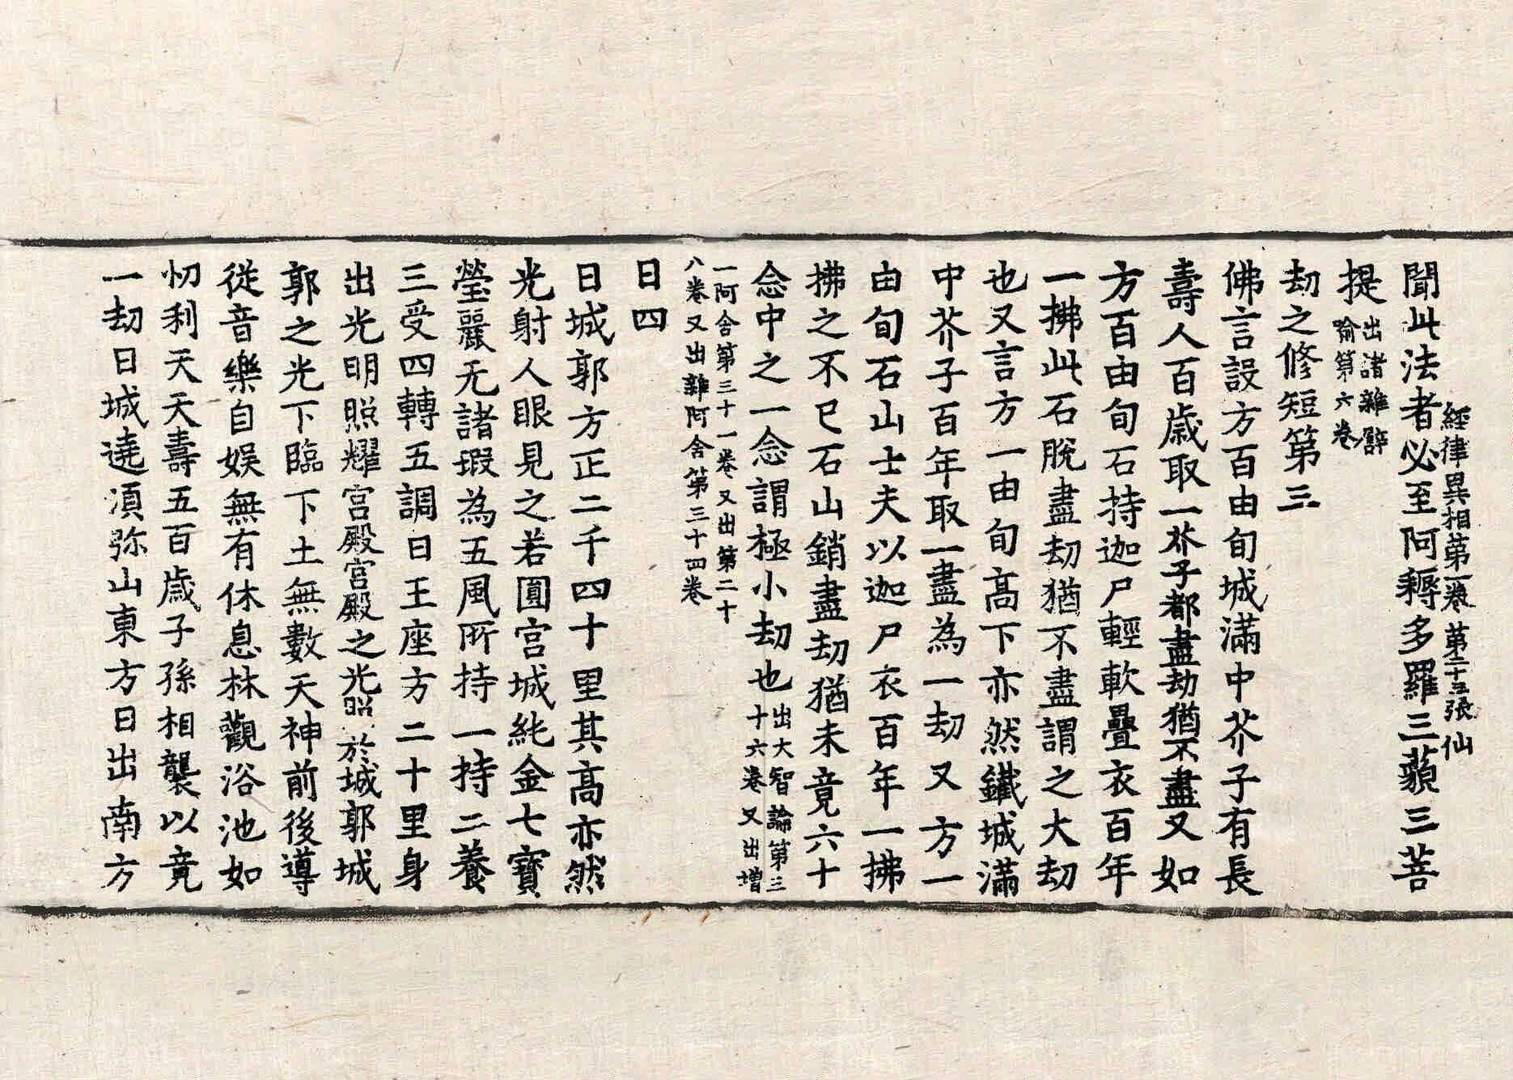 經律異相第一卷 第二十五張 仙
聞此法者必至阿耨多羅三藐三菩
提 出諸雜譬
喻第六卷
劫之修短第三
佛言設方百由旬城滿中芥子有長
壽人百歲取一芥子都盡劫猶不盡又如
方百由旬石持迦尸輕軟疊衣百年
一拂此石脫盡劫猶不盡謂之大劫
也又言方一由旬高下亦然鐵城滿
中芥子百年取一盡為一劫又方一
由旬石山士夫以迦尸衣百年一拂
拂之不已石山銷盡劫猶未竟六十
念中之一念謂極小劫也 出大智論第三
十六卷又出增
一阿含第三十一卷又出第二十
八卷又出雜阿含第三十四卷
日四
日城郭方正二千四十里其高亦然
光射人眼見之若圓宮城純金七寶
瑩麗无諸瑕為五風所持一持二養
三受四轉五調日王座方二十里身
出光明照耀宮殿宮殿之光照於城郭城
郭之光下臨下土無數天神前後導
從音樂自娛無有休息林觀浴池如
忉利天天壽五百歲子孫相襲以竟
一劫日城遶湏弥山東方日出南方